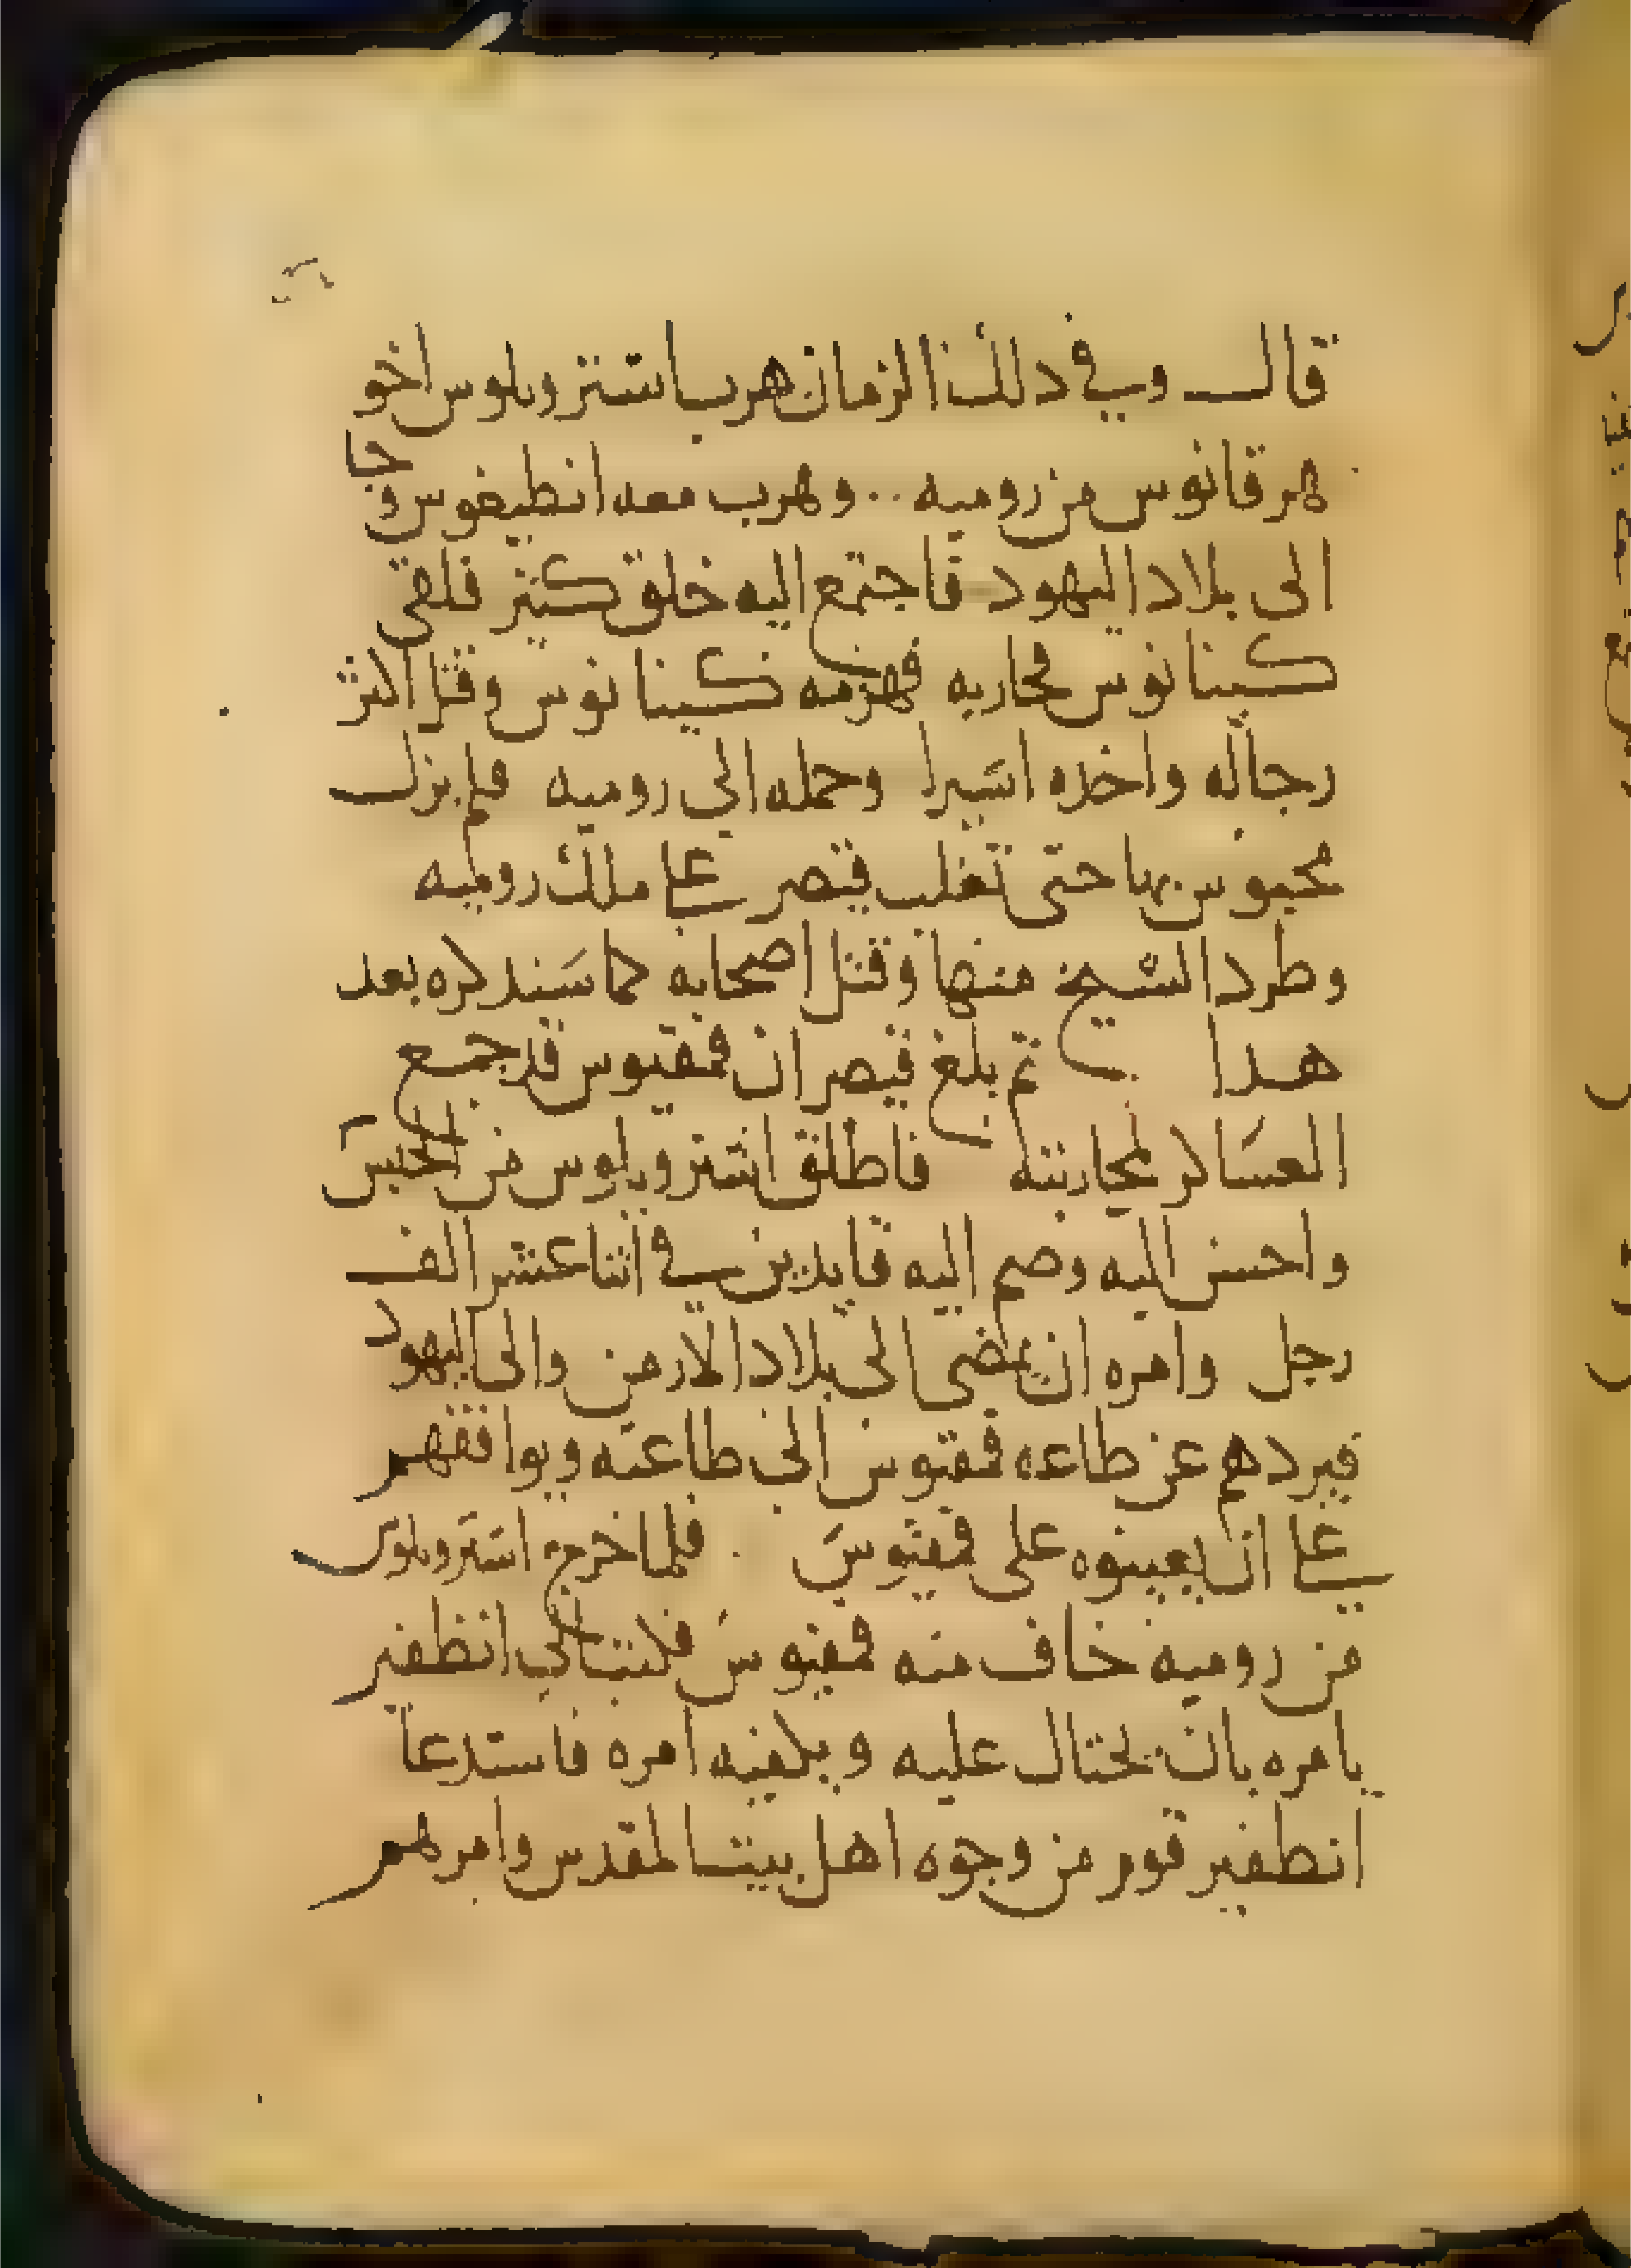 قال وفي دلك الزمان هرب استتروبلوس اخو
هرقانوس من روميه .. وهرب معه انطيغوس وجا
الى بلاد اليهود فاجتمع اليه خلق كثير فلقي
كينانوس محاربه فهزمه كينانوس وقتل اكثر
رجاله واخذه اسيرا وحمله الي روميه فلم يزل
محبوس بها حتى تغلب قيصر على ملك روميه
وطرد الشيخ منها وقتل اصحابه كما سندكره بعد
هدا ثم بلغ قيصر ان فمقيوس قد جمع
العساكر لمحاربته فاطلق استروبلوس من الحبس
واحسن اليه وضم اليه قايدين في اثنا عشر الف
رجل وامره ان يمضى الى بلاد الارمن والى اليهود
فيردهم عن طاعه فمقيوس الي طاعته ويوافقهم
على ان يعينوه على فمقيوس . فلما خرج استروبلوس
من روميه خاف منه فمقيوس فكتب الي انطفير
يامره بان يحتال عليه ويكفيه امره فاستدعا
انطفير قوم من وجوه اهل بيت المقدس وامرهم